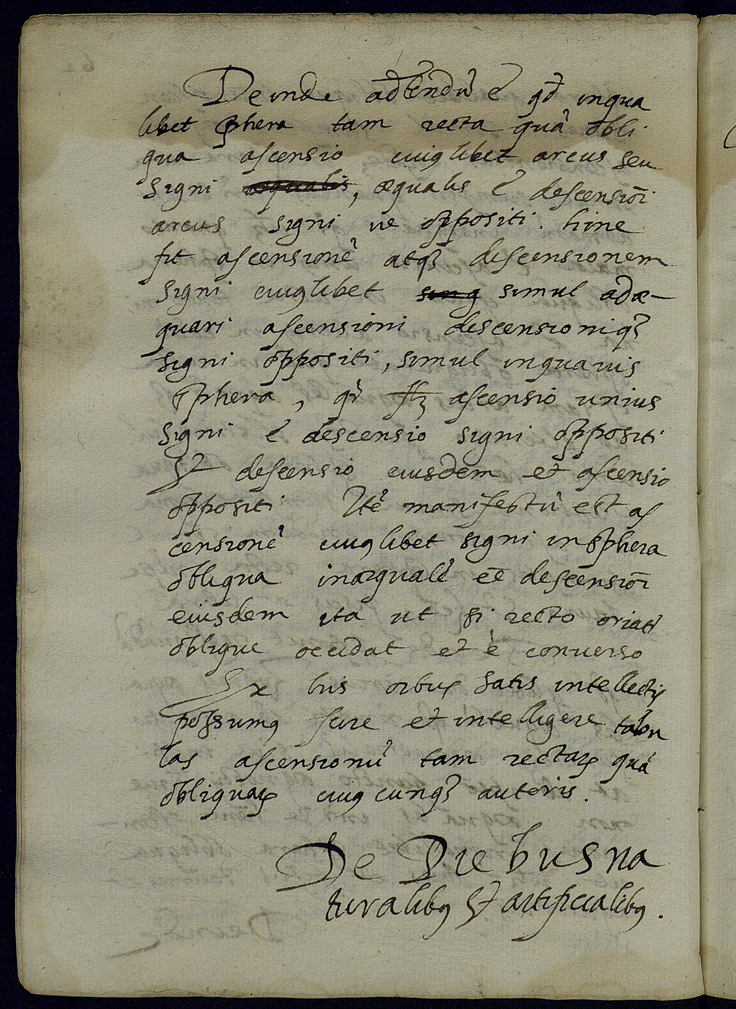 Deinde addendũ ē qđ inqua
libet sphera tam recta quã obli
qua ascensio cuiuslibet arcus seu
signi æqualis, æqualis ē descensioĩ
arcus signi ve oppositi. hinc
fit ascensionẽ atqꝫ descensionem
signi cuiꝰlibet simul adæ-
quari ascensioni descensioniqꝫ
signi oppositi, simul inquavis
sphera, qr̃ ascensio unius
signi ē descensio signi oppositi
Et descensio eiusdem et ascensio
oppositi Itẽ manifestũ est as
censionẽ cuiꝰlibet signi in sphera
obliqua inæqualẽ eẽ descensioĩ
eiusdem ita ut si recto oriat᷑
oblique occidat et è converso
Ex his orbiꝰ satis intellectis
possumꝰ scire et intelligere tabu
las ascensionũ tam rectaꝝ quã
obliquaꝝ cuiꝰcunqꝫ autoris.
De Diebus na
turalibꝰ Et artificialibꝰ.